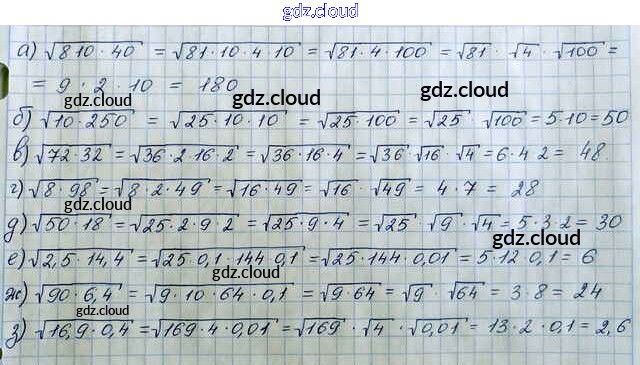 gdz.cloud
а) √810·40 = √81·10·4·10 = √81·4·100 = √81 · √4 · √100 =
= 9 · 2 · 10 = 180
gdz.cloud gdz.cloud gdz.cloud
б) √10·250 = √25·10·10 = √25·100 = √25 · √100 = 5·10=50
в) √72·32 = √36·2·16·2 = √36·16·4 = √36 √16 · √4 = 6·4 2 = 48.
г) √8·98 = √8·2·49 = √16·49 = √16 · √49 = 4·7 = 28
gdz.cloud gdz.cloud
д) √50·18 = √25·2·9·2 = √25·9·4 = √25 √9 · √4 = 5·3·2 = 30
gdz.cloud
е) √2,5·14,4 = √25·0,1·144 0,1 = √25·144·0,01 = 5·12 0,1 = 6
ж) √90·6,4 = √9·10·64·0,1 = √9·64 = √9 · √64 = 3·8 = 24
gdz.cloud gdz.cloud
з) √16,9·0,4 = √169·4·0,01 = √169 · √4 · √0,01 = 13·2·0,1 = 2,6